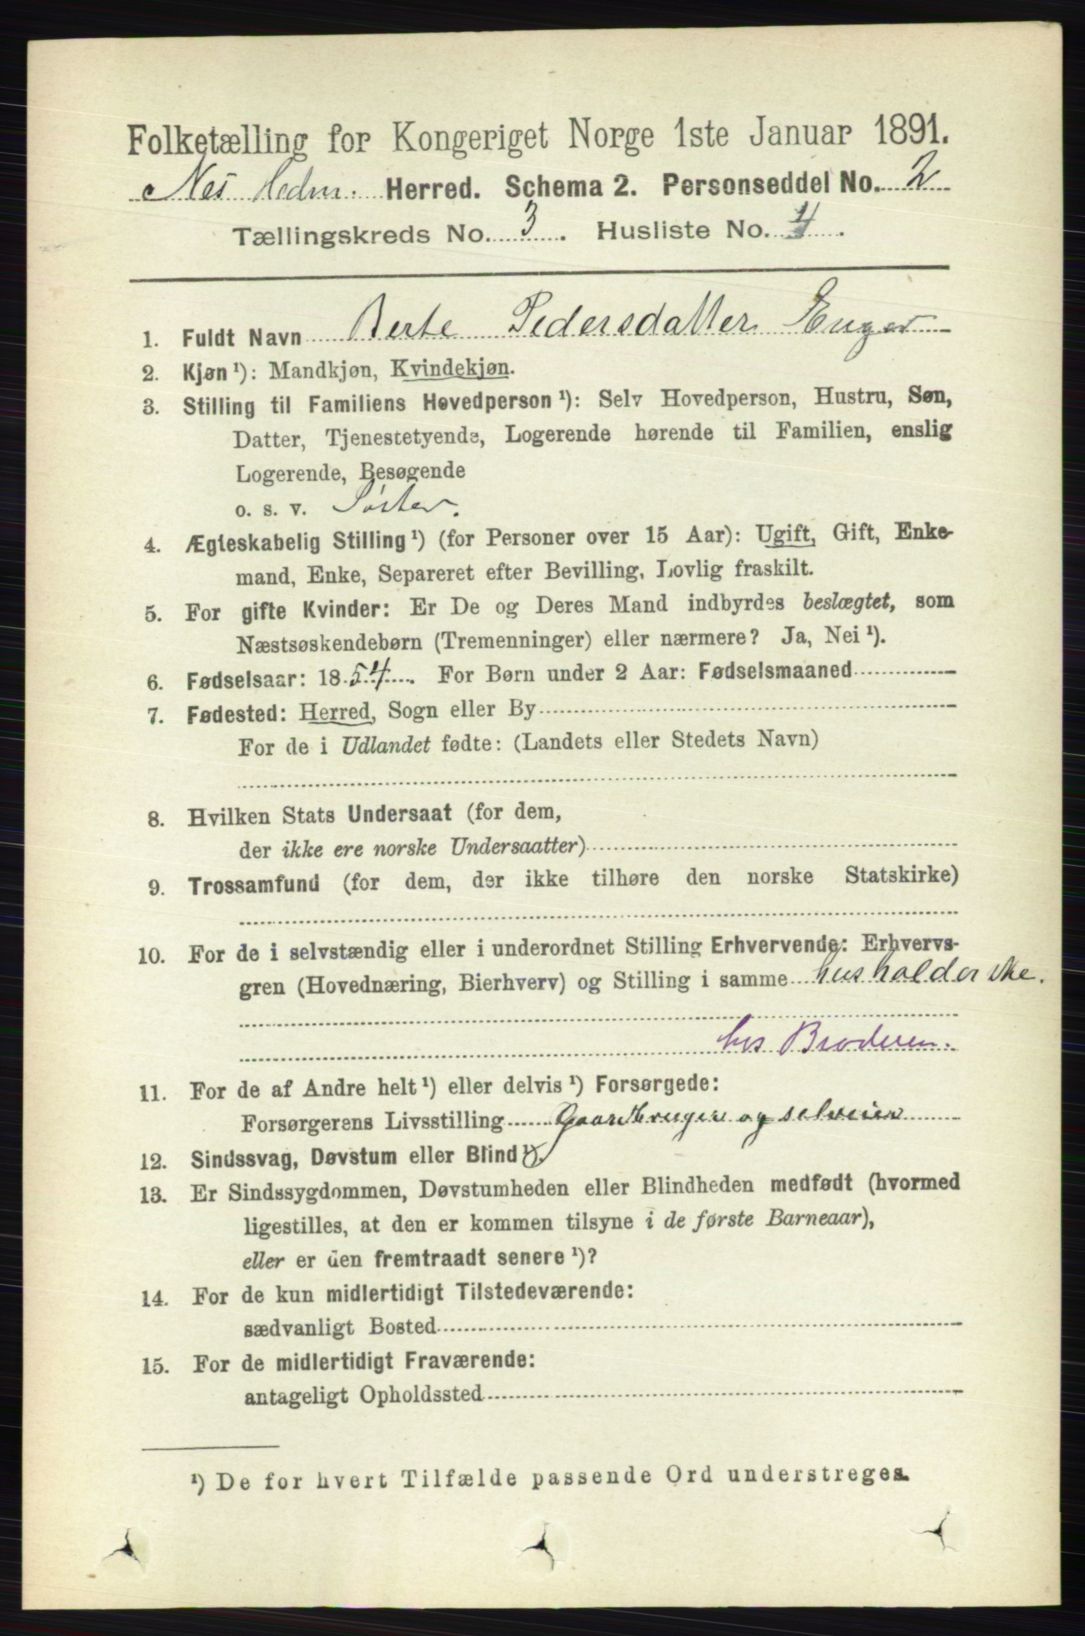 Folketælling for Kongeriget Norge 1ste Januar 1891.
Nes Hedm. Herred. Schema 2. Personseddel No. 2
Tællingskreds No. 3. Husliste No. 4.
1. Fuldt Navn Berte Pedersdatter Enger
2. Kjøn ¹): Mandkjøn, Kvindekjøn.
3. Stilling til Familiens Hovedperson ¹): Selv Hovedperson, Hustru, Søn,
Datter, Tjenestetyende, Logerende hørende til Familien, enslig
Logerende, Besøgende
o. s. v. Søster.
4. Ægteskabelig Stilling ¹) (for Personer over 15 Aar): Ugift, Gift, Enke-
mand, Enke, Separeret efter Bevilling, Lovlig fraskilt.
5. For gifte Kvinder: Er De og Deres Mand indbyrdes beslægtet, som
Næstsøskendebørn (Tremenninger) eller nærmere? Ja, Nei ¹).
6. Fødselsaar: 1854. For Børn under 2 Aar: Fødselsmaaned
7. Fødested: Herred, Sogn eller By
For de i Udlandet fødte: (Landets eller Stedets Navn)
8. Hvilken Stats Undersaat (for dem,
der ikke ere norske Undersaatter)
9. Trossamfund (for dem, der ikke tilhøre den norske Statskirke)
10. For de i selvstændig eller i underordnet Stilling Erhvervende: Erhvervs-
gren (Hovednæring, Bierhverv) og Stilling i samme husholderske.
hos Broderen.
11. For de af Andre helt ¹) eller delvis ¹) Forsørgede:
Forsørgerens Livsstilling Gaardbruger og selveier
12. Sindssvag, Døvstum eller Blind ¹).
13. Er Sindssygdommen, Døvstumheden eller Blindheden medfødt (hvormed
ligestilles, at den er kommen tilsyne i de første Barneaar),
eller er den fremtraadt senere ¹)?
14. For de kun midlertidigt Tilstedeværende:
sædvanligt Bosted
15. For de midlertidigt Fraværende:
antageligt Opholdssted
¹) De for hvert Tilfælde passende Ord understreges.